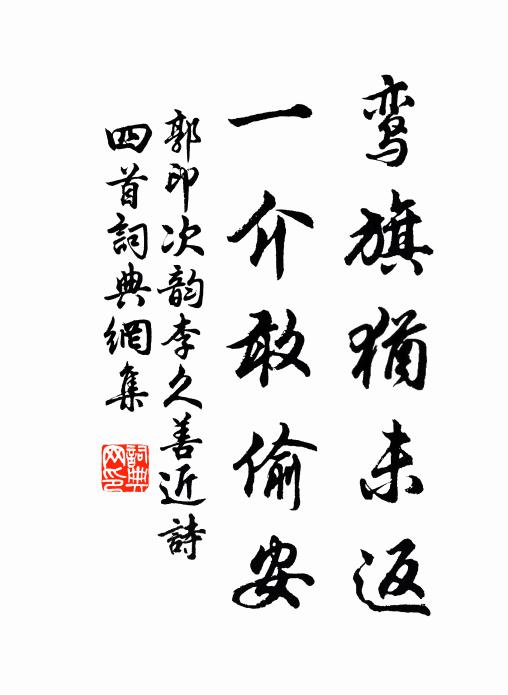 鸾旗猶未返
一介敢偷安
郭印次韵李久善近詩
四首詞典網集
詞典网印